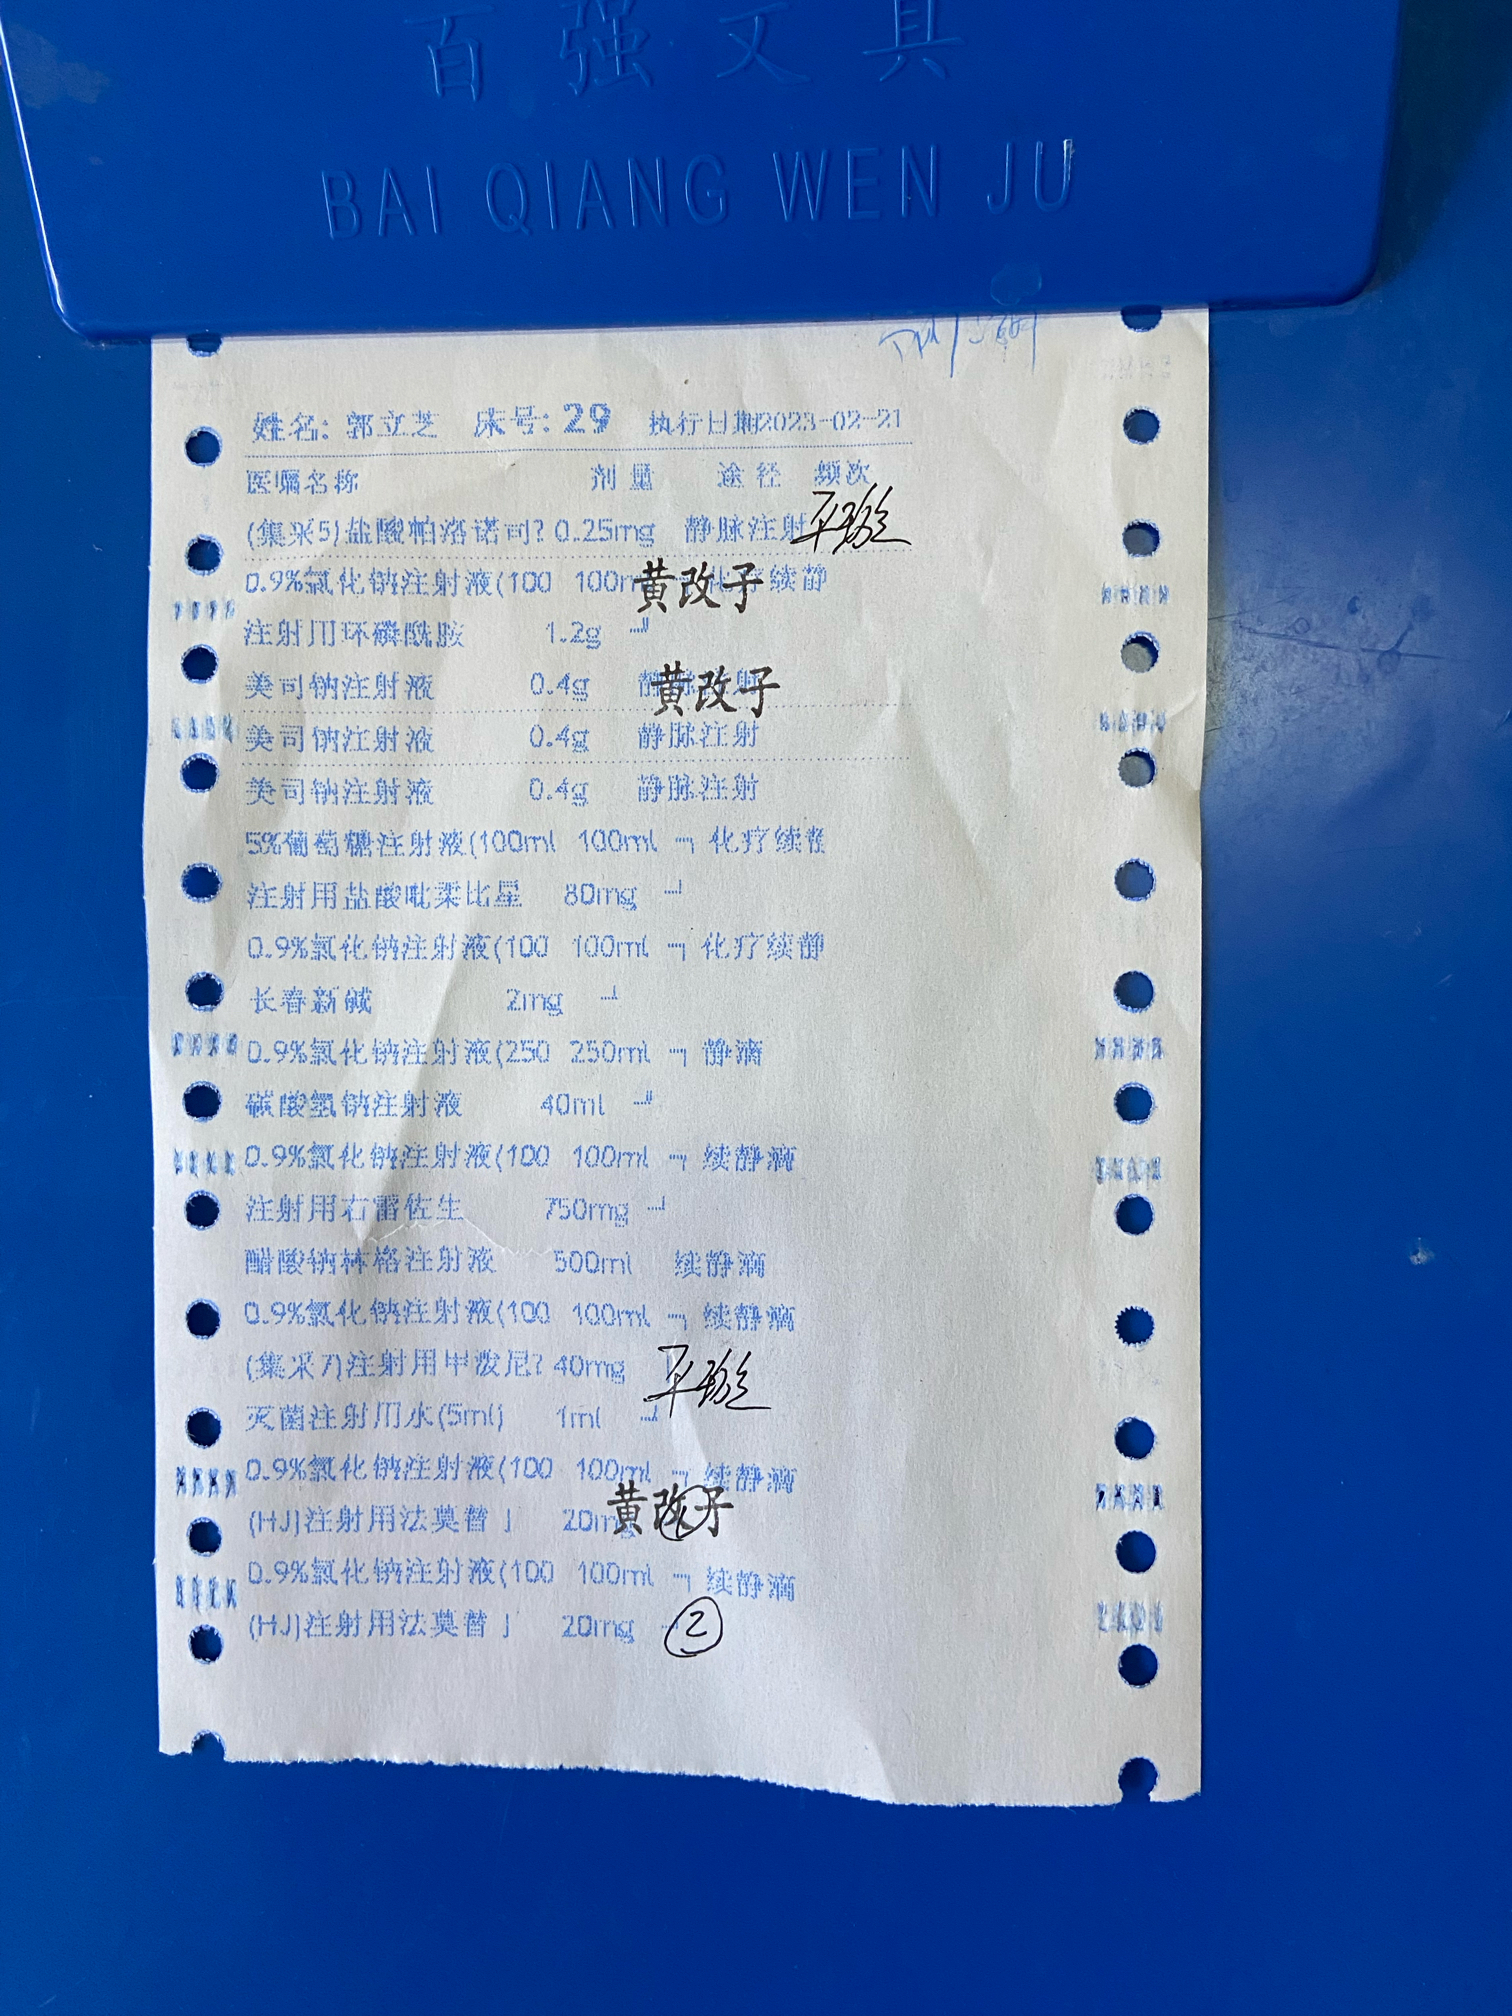 百强文具
BAI QIANG WEN JU
姓名: 郭立芝 床号: 29 执行日期2023-02-21
医嘱名称 剂量 途径 频次
(集采5)盐酸帕洛诺司? 0.25mg 静脉注射
0.9%氯化钠注射液(100 100m 黄改子 化疗续静
注射用环磷酰胺 1.2g ┘
美司钠注射液 0.4g 静脉注射 黄改子
美司钠注射液 0.4g 静脉注射
美司钠注射液 0.4g 静脉注射
5%葡萄糖注射液(100ml 100ml ┐ 化疗续静
注射用盐酸吡柔比星 80mg ┘
0.9%氯化钠注射液(100 100ml ┐ 化疗续静
长春新碱 2mg ┘
0.9%氯化钠注射液(250 250ml ┐ 静滴
碳酸氢钠注射液 40ml ┘
0.9%氯化钠注射液(100 100ml ┐ 续静滴
注射用右雷佐生 750mg ┘
醋酸钠林格注射液 500ml 续静滴
0.9%氯化钠注射液(100 100ml ┐ 续静滴
(集采7)注射用甲泼尼? 40mg
灭菌注射用水(5ml) 1ml ┘
0.9%氯化钠注射液(100 100ml ┐ 续静滴
(HJ)注射用法莫替丁 20mg 黄改子 ①
0.9%氯化钠注射液(100 100ml ┐ 续静滴
(HJ)注射用法莫替丁 20mg ②